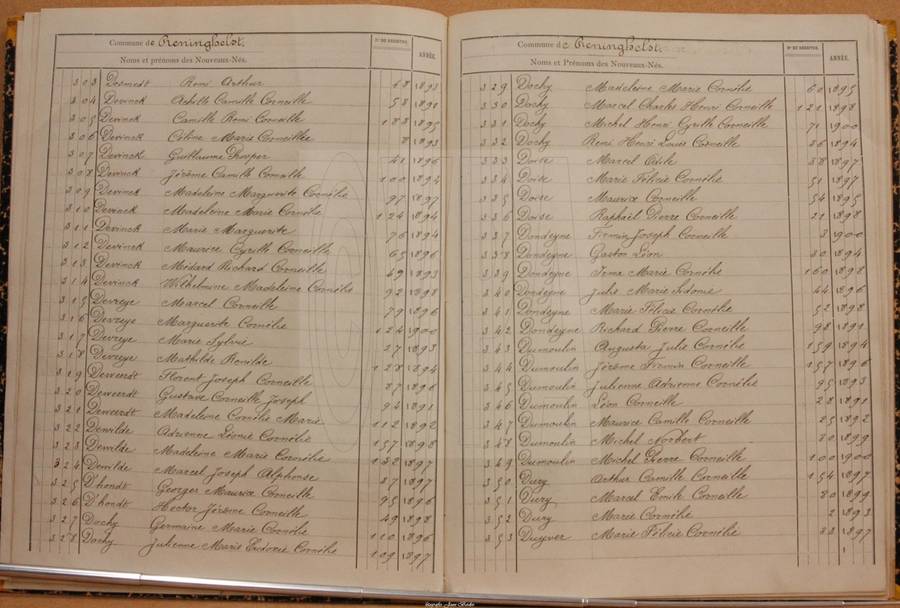 Commune de Reninghelst.
Noms et prénoms des Nouveaux-Nés. N° DU REGISTRE. ANNÉE.
303 Desmedt Remi Arthur 68 1893
304 Devinck Achille Camille Corneille 58 1891
305 Devinck Camille Remi Corneille 188 1895
306 Devinck Céline Marie Corneillie 8 1893
307 Devinck Guillaume Prosper 41 1896
308 Devinck Jérôme Camille Corneille 100 1894
309 Devinck Madeleine Marguerite Cornélie 97 1897
310 Devinck Madeleine Marie Cornélie 124 1894
311 Devinck Marie Marguerite 76 1894
312 Devinck Maurice Cyrille Corneille 65 1896
313 Devinck Médard Richard Corneille 49 1893
314 Devinck Wilhelmine Madeleine Cornélie 92 1898
315 Devreye Marcel Corneille 79 1896
316 Devreye Marguerite Cornélie 124 1900
317 Devreye Marie Sylvie 27 1893
318 Devreye Mathilde Romilde 128 1894
319 Deweerdt Florent Joseph Corneille 87 1896
320 Deweerdt Gustave Corneille Joseph 94 1891
321 Deweerdt Madeleine Cornélie Marie 112 1892
322 Dewilde Adrienne Léonie Cornélie 157 1898
323 Dewilde Madeleine Marie Cornélie 132 1897
324 Dewilde Marcel Joseph Alphonse 37 1897
325 D'hondt Georges Maurice Corneille 95 1896
326 D'hondt Hector Jérôme Corneille 49 1898
327 Dochy Germaine Marie Cornélie 110 1896
328 Dochy Julienne Marie Eudoxie Cornélie 109 1897
Commune de Reninghelst.
Noms et Prénoms des Nouveaux-Nés. N° DU REGISTRE. ANNÉE.
329 Dochy Madeleine Marie Cornélie 60 1895
330 Dochy Marcel Charles Henri Corneille 121 1898
331 Dochy Michel Henri Cyrille Corneille 71 1900
332 Dochy Remi Henri Louis Corneille 36 1894
333 Doise Marcel Odile 58 1897
334 Doise Marie Félicie Cornélie 51 1897
335 Doise Maurice Corneille 54 1895
336 Doise Raphaël Pierre Corneille 21 1898
337 Dondeyne Firmin Joseph Corneille 3 1900
338 Dondeyne Gaston Léon 30 1894
339 Dondeyne Irma Marie Cornélie 160 1898
340 Dondeyne Julie Marie Sidonie 44 1896
341 Dondeyne Marie Félicie Cornélie 52 1898
342 Dondeyne Richard Pierre Corneille 98 1891
343 Dumoulin Augusta Julie Cornélie 159 1894
344 Dumoulin Jérôme Firmin Corneille 157 1896
345 Dumoulin Julienne Adrienne Cornélie 95 1893
346 Dumoulin Léon Corneille 28 1891
347 Dumoulin Maurice Camille Corneille 25 1892
348 Dumoulin Michel Norbert 80 1899
349 Dumoulin Michel Pierre Corneille 100 1900
350 Dury Arthur Camille Corneille 154 1897
351 Dury Marcel Emile Corneille 80 1899
352 Dury Marie Cornélie 2 1893
353 Duyver Marie Félicie Cornélie 33 1897